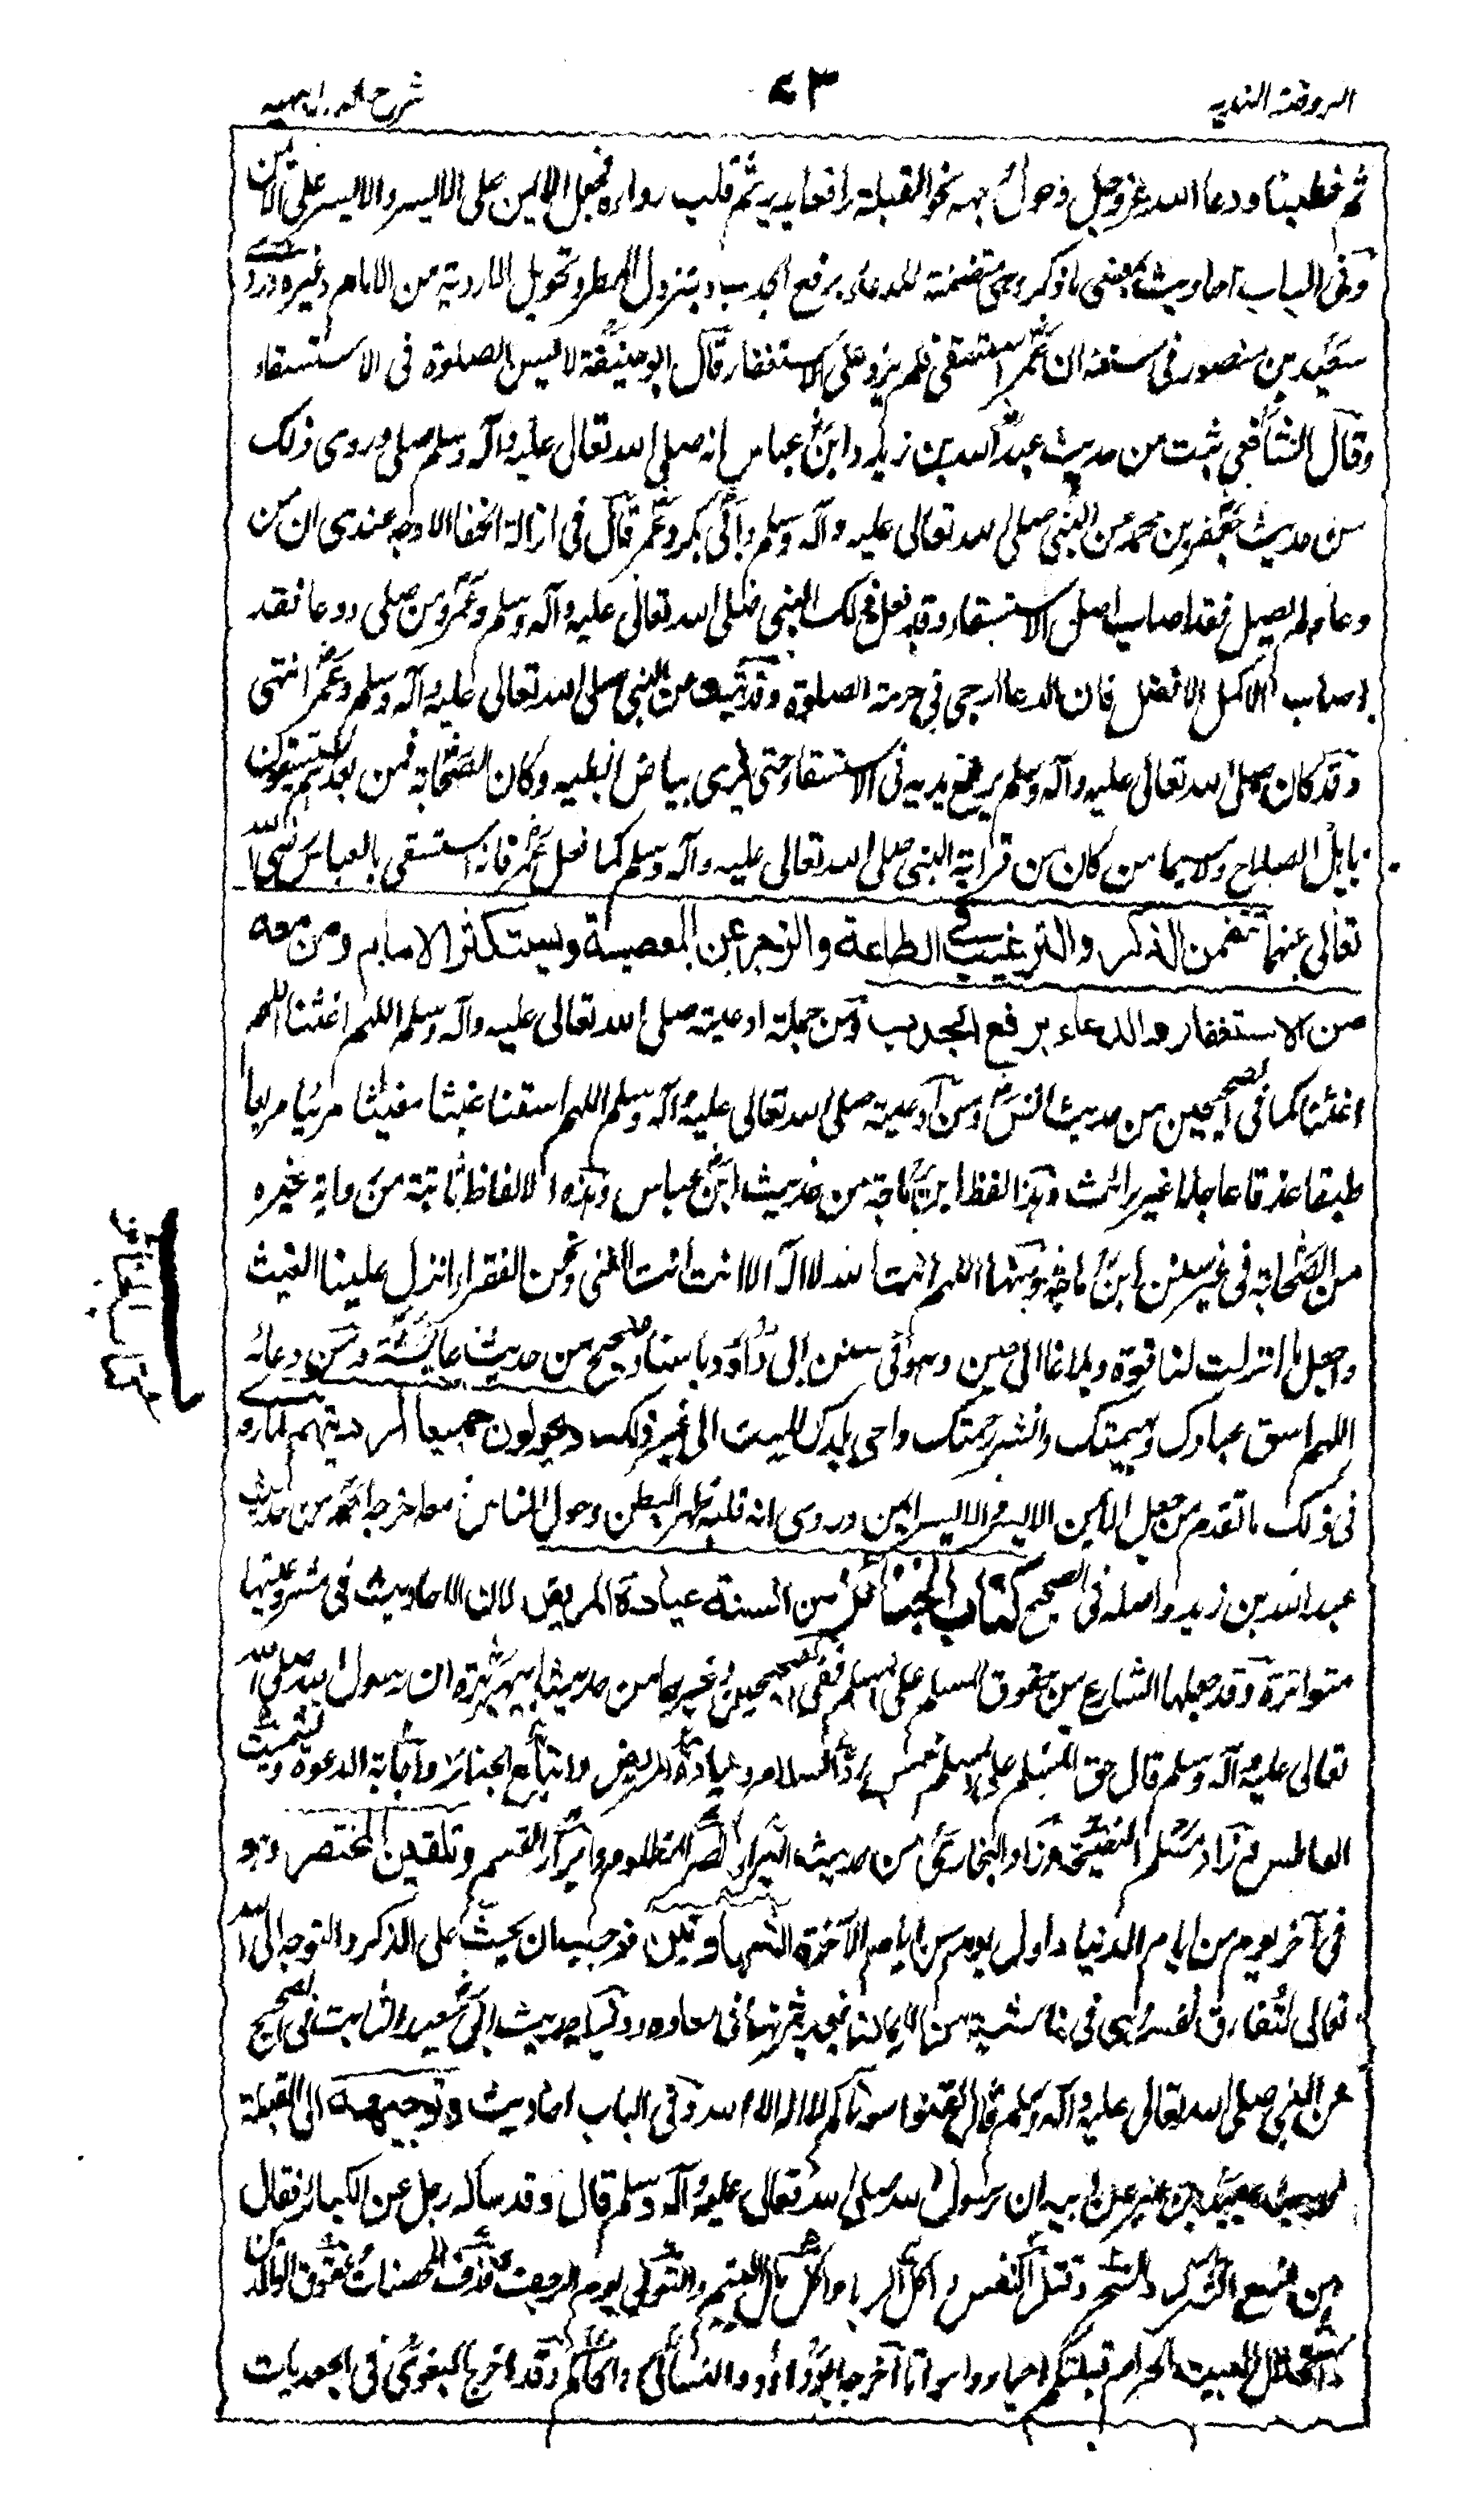 الروضة الندية
٧٣
شرح الدرر البهية
ثم خطبنا ودعا الله عز وجل وحول وجهه نحو القبلة رافعا يديه ثم قلب رداءه فجعل الايمن على الايسر والايسر على الايمن
وفى الباب احاديث بمعنى ما ذكر وهى متضمنة للدعاء برفع الجدب وبنزول المطر وتحويل الاردية من الامام وغيره وروى
سعيد بن منصور فى سننه ان عمر استسقى فلم يزد على الاستغفار قال ابو حنيفة لا ليس الصلوة فى الاستسقاء
وقال الشافعي ثبت من حديث عبد الله بن زيد وابن عباس انه صلى الله تعالى عليه وآله وسلم صلى وروى ذلك
من حديث جعفر بن محمد عن النبى صلى الله تعالى عليه وآله وسلم وابى بكر وعمر قال فى ازالة الخفا الاوجه عندى ان من
دعا ولم يصل فقد اصاب اصل الاستسقاء وقد فعل ذلك النبى صلى الله تعالى عليه وآله وسلم وعمر ومن صلى ودعا فقد
اصاب الاكمل الافضل فان الدعا ارجى فى حرمة الصلوة وقد ثبت من النبى صلى الله تعالى عليه وآله وسلم وعمر انتهى
وقد كان صلى الله تعالى عليه وآله وسلم يرفع يديه فى الاستسقا حتى يرى بياض ابطيه وكان الصحابة فمن بعدهم يستسقون
باهل الصلاح ولا سيما من كان من قرابة النبى صلى الله تعالى عليه وآله وسلم كما فعل عمر فانه استسقى بالعباس رضى الله
تعالى عنهما تتضمن الذكر والترغيب فى الطاعة والزجر عن المعصية ويستكثر الامام ومن معه
من الاستغفار والدعاء برفع الجدب ومن جملة ادعيته صلى الله تعالى عليه وآله وسلم اللهم اغثنا اللهم
اغثنا كما فى الصحيحين من حديث انس ومن ادعيته صلى الله تعالى عليه وآله وسلم اللهم اسقنا غيثا مغيثا مريئا مريعا
طبقا غدقا عاجلا غير رائث وهذا لفظ ابن ماجة من حديث ابن عباس وهذه الالفاظ ثابتة من رواية غيره
من الصحابة فى غير سنن ابن ماجه ومنها اللهم انت الله لا اله الا انت انت الغنى ونحن الفقراء انزل علينا الغيث
واجعل ما انزلت لنا قوة وبلاغا الى حين وهو فى سنن ابى داؤد باسناد صحيح من حديث عايشة ومن دعائه
اللهم اسق عبادك وبهيمتك وانشر رحمتك واحى بلدك الميت الى غير ذلك ويحولون جميعا ارديتهم لما روى
فى ذلك ما تقدم من جعل الايمن الايسر والايسر الايمن وروى انه قلبه ظهرا لبطن وحول الناس معه اخرجه احمد من حديث
عبد الله بن زيد واصله فى الصحيح كتاب الجنائز من السنة عيادة المريض لان الاحاديث فى مشروعيتها
متواترة وقد جعلها الشارع من حقوق المسلم على المسلم ففى الصحيحين وغيرهما من حديث ابى هريرة ان رسول الله صلى الله
تعالى عليه وآله وسلم قال حق المسلم على المسلم خمس رد السلام وعيادة المريض واتباع الجنائز واجابة الدعوة وتشميت
العاطس وزاد مسلم النصيحة وزاد البخارى من حديث البراء نصر المظلوم وابرار القسم وتلقين المحتضر وهو
فى آخر يوم من ايام الدنيا واول يوم من ايام الآخرة الشهادتين فوجب ان يحث على الذكر والتوجه الى الله
تعالى لتفارق نفسه وهى فى غاشية من الايمان فيجد ثمرتها فى معاده ودليله حديث ابى سعيد الثابت فى الصحيح
عن النبى صلى الله تعالى عليه وآله وسلم قال لقنوا موتاكم لا اله الا الله وفى الباب احاديث وتوجيهه الى القبلة
لحديث عبيد بن عمير عن ابيه ان رسول الله صلى الله تعالى عليه وآله وسلم قال وقد ساله رجل عن الكبائر فقال
هن تسع الشرك والسحر وقتل النفس واكل الربا واكل مال اليتيم والتولى يوم الزحف وقذف المحصنات وعقوق الوالدين
واستحلال البيت الحرام قبلتكم احياء وامواتا اخرجه ابو داؤد والنسائى والحاكم وقد اخرج البغوى فى الجعديات